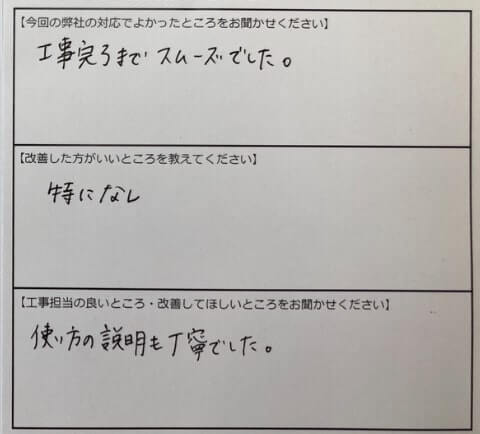 【今回の弊社の対応でよかったところをお聞かせください】
工事完了まで スムーズでした。
【改善した方がいいところを教えてください】
特になし
【工事担当の良いところ・改善してほしいところをお聞かせください】
使い方の説明も丁寧でした。